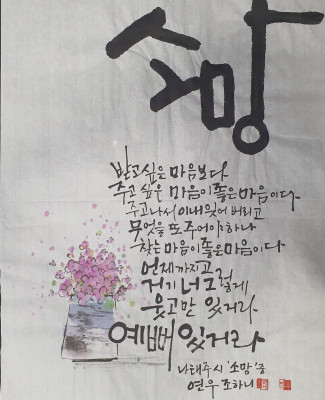 소망
받고 싶은 마음보다
주고 싶은 마음이 좋은 마음이다
주고 나서 이내 잊어버리고
무엇을 또 주어야 하나
찾는 마음이 좋은 마음이다
언제까지고
거기 너 그렇게
웃고만 있거라
예뻐 있거라
나태주 시 '소망' 중
연우 조하니